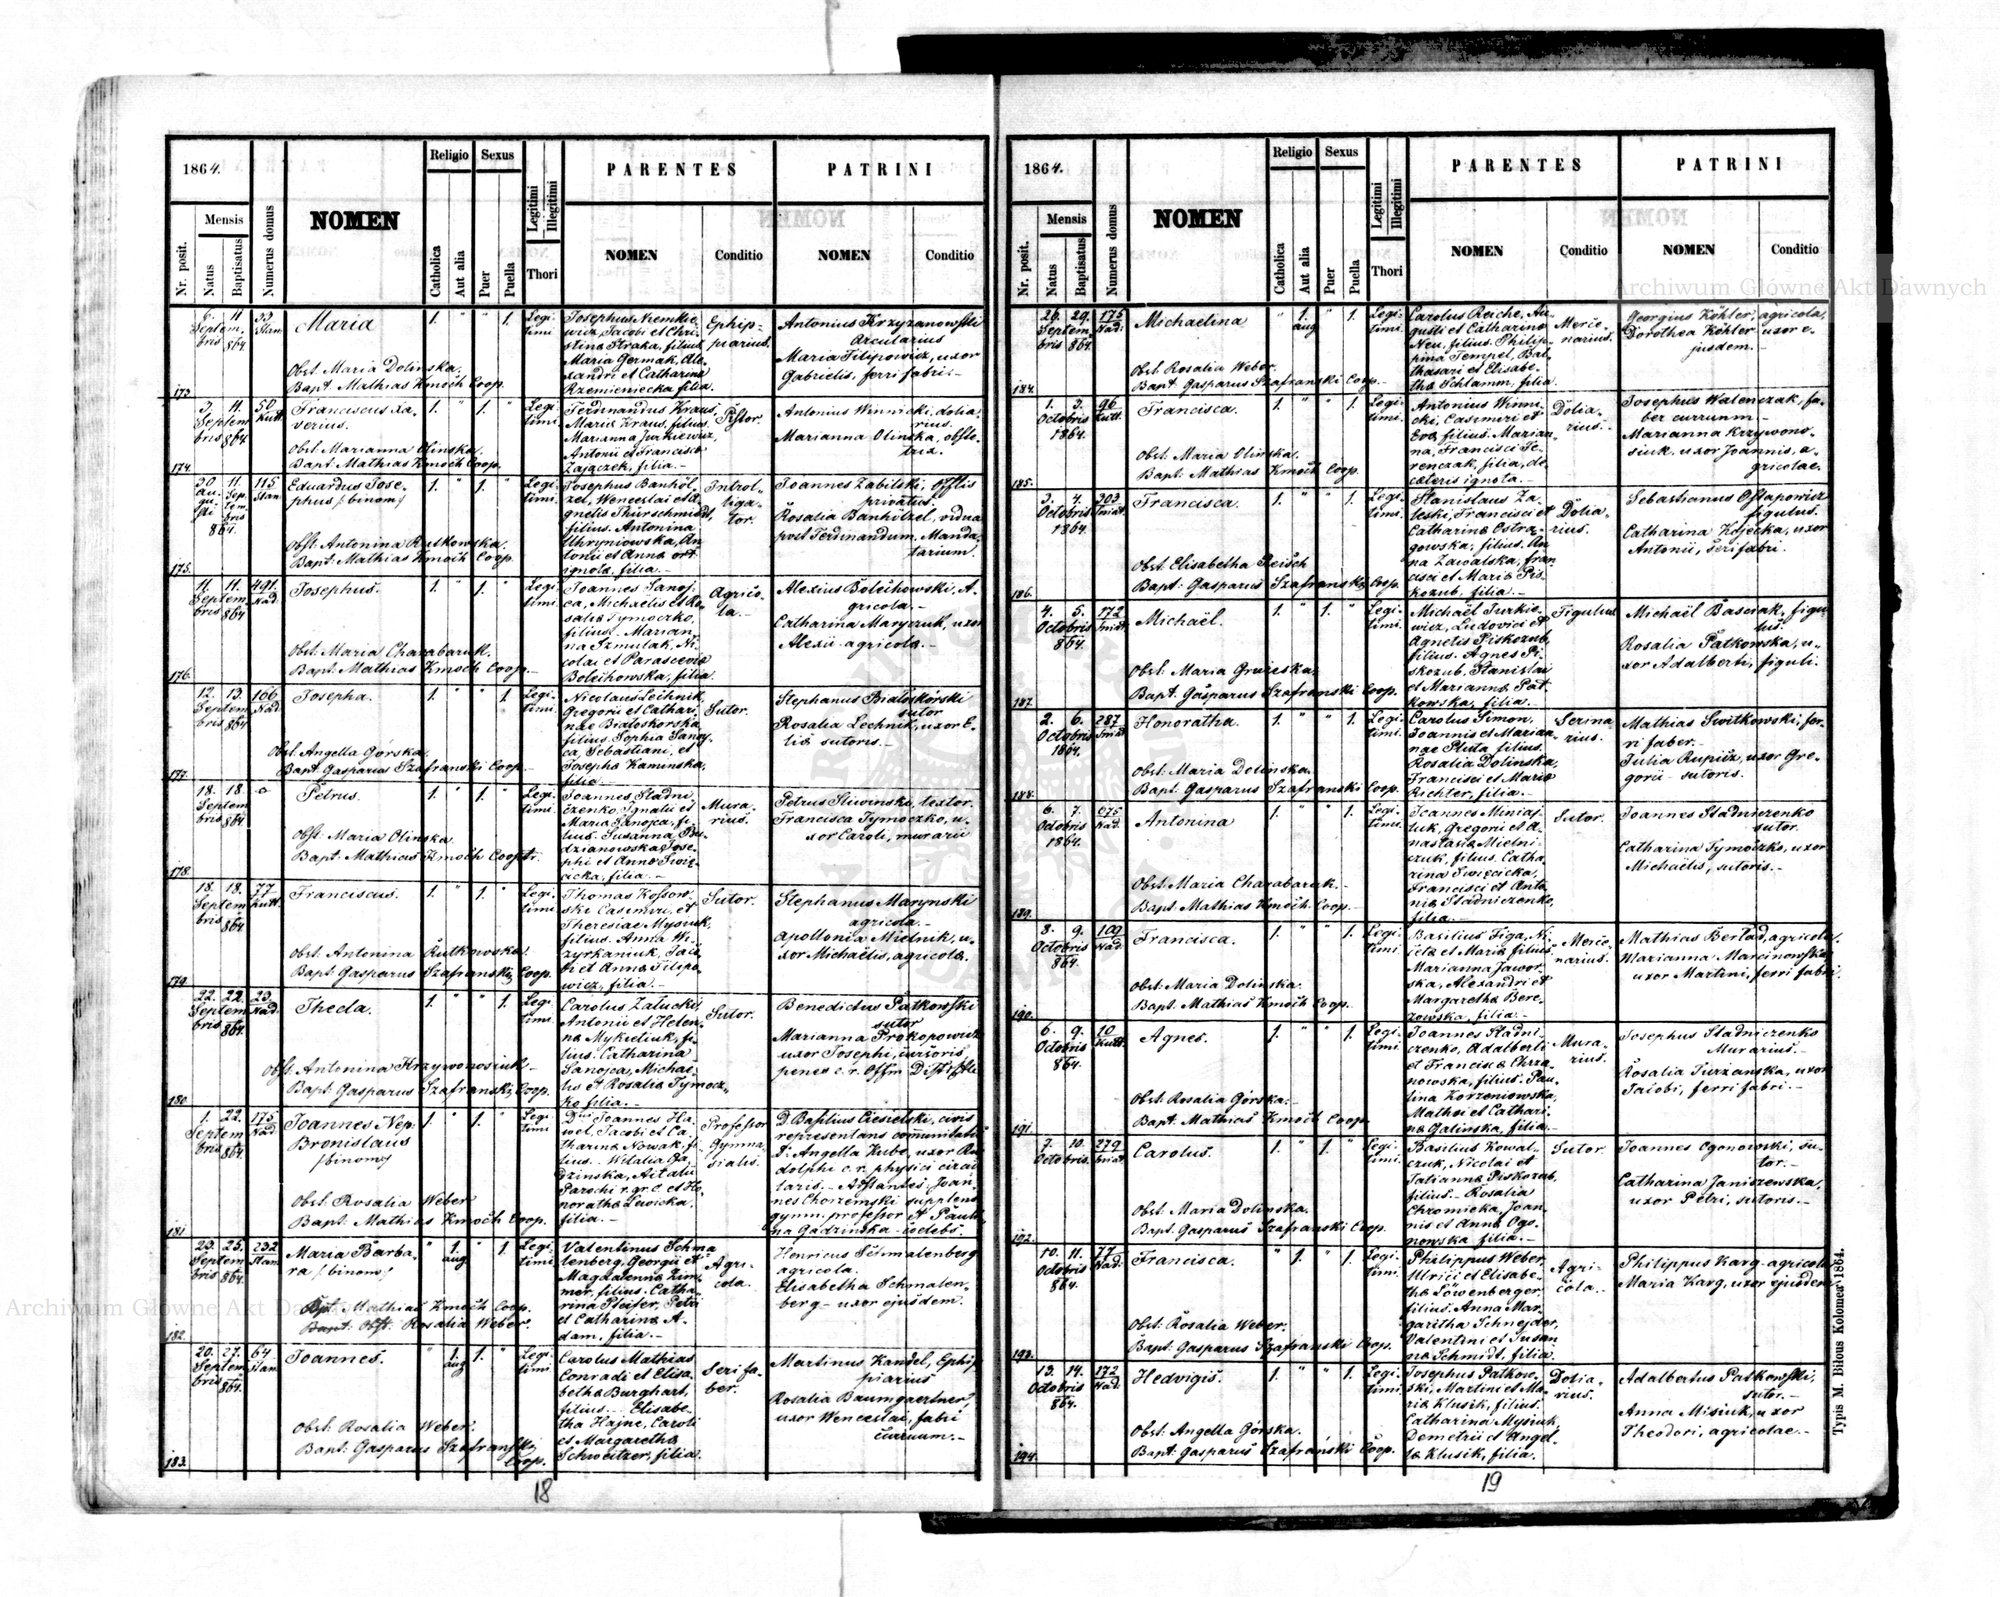 1864.
Nr. posit.
Mensis
Natus
Baptisatus
Numerus domus
NOMEN
Religio
Catholica
Aut alia
Sexus
Puer
Puella
Legitimi
Illegitimi
Thori
PARENTES
NOMEN
Conditio
PATRINI
NOMEN
Conditio
173.
6. 11. 33
Septem- Stan
bris 864.
Maria
1. " " 1. Legi-
timi
Obst. Maria Dolinska.
Bapt. Mathias Kmoch Coop.
Josephus Niemkie-
wicz, Jacobi et Chri-
stinae Straka, filius
Maria Germak, Ale-
xandri et Catharina
Rzemieniecka, filia.
Ephip-
piarius.
Antonius Krzyzanowski
Arcularius
Maria Filipowicz, uxor
Gabrielis, ferri fabri.-
174.
3. 11. 50
Septem Kutt
bris 864
Franciscus Xa-
verius.
1. " 1. " Legi-
timi.
Obst. Marianna Olinska.
Bapt. Mathias Kmoch Coop.
Ferdinandus Kraus,
Maria Kraus, filius.
Marianna Jurkiewicz,
Antonii et Francisca
Zajączek, filia.-
Pistor.
Antonius Winnicki, dolia-
rius.
Marianna Olinska, obste-
trix.
175.
30 11. 115
au- Sep- Stan
gu- tem-
sti bris
864.
Eduardus Jose-
phus /:binom:/
1. " 1. " Legi-
timi
Obst. Antonina Rutkowska.
Bapt. Mathias Kmoch Coop.
Josephus Banhöl-
zel, Wenceslai et A-
gnetis Thürschmidt,
filius. Antonina
Uhryniowska, An-
tonii et Anna ort.
ignota, filia.-
Introl-
liga-
tor.
Joannes Zabilski, Offlis
privatus.
Rosalia Banhölzel, vidua
post Ferdinandum, Manda-
tarium.
176.
11. 11. 491.
Septem Nad.
bris 864
Josephus.
1. " 1. " Legi-
timi.
Obst. Maria Charabaruk.
Bapt. Mathias Kmoch Coop.-
Joannes Sanoj-
ca, Michaelis et Ro-
salia Tymoczko,
filius. Marian-
na Szmulak, Ni-
colai et Parascevia
Bolechowska, filia.
Agrico-
la.-
Alexius Bolechowski, A-
gricola.-
Catharina Maryczuk, uxor
Alexii agricola.-
177.
12. 13. 166
Septem Nad.
bris 864
Josepha.
1. " " 1. Legi-
timi.
Obst. Angella Górska.
Bapt. Gasparus Szafranski Coop.-
Nicolaus Lechnik,
Gregorii et Cathari-
nae Bialoskorska
filius. Sophia Sanoj-
ca, Sebastiani, et
Josepha Kaminska,
filia.-
Sutor.
Stephanus Bialoskórski
sutor
Rosalia Lechnik, uxor E-
liae sutoris.-
178.
18. 18. o
Septem
bris 864
Petrus.
1. " 1. " Legi-
timi.
Obst. Maria Olinska
Bapt. Mathias Kmoch Cooptr.
Joannes Stadni-
czenko, Ignatii et
Maria Sanojca, fi-
lius. Susanna Bu-
dzianowska, Jose-
phi et Anna Swię-
cicka, filia.-
Mura-
rius.
Petrus Sliwinski, textor.
Francisca Tymoczko, u-
xor Caroli, murarii
179.
18. 18. 77
Septem Kutt.
bris 864
Franciscus.
1. " 1. " Legi-
timi
Obst. Antonina Rutkowska
Bapt. Gasparus Szafranski Coop.
Thomas Kossow-
ski Casimiri, et
Theresiae Mysiuk,
filius. Anna Wi-
czyrkaniuk, Jaco-
bi et Anna Filipo-
wicz, filia.-
Sutor.
Stephanus Marynski
agricola.-
Apollonia Mielnik, u-
xor Michaëlis, agricola.
180.
22. 22. 23.
Septem Nad.
bris 864.
Thecla.
1. " " 1. Legi-
timi
Obst. Antonina Krzywonosiuk.-
Bapt. Gasparus Szafranski Coop.
Carolus Zalucki,
Antonii et Helen-
na Mykieluk, fi-
lius. Catharina
Sanojca, Michae-
lis et Rosalia Tymocz-
ko filia.-
Sutor.
Benedictus Patkowski
sutor
Marianna Prokopowicz
uxor Josephi, cursoris
penes c. r. Offm Districtle
181.
1. 22. 175
Septem Nad.
bris 864.
Joannes Nep.
Bronislaus
/:binom:/
1. " 1. " Legi-
timi
Obst. Rosalia Weber
Bapt. Mathias Kmoch Coop.
Dnus Joannes Ha-
wel, Jacobi et Ca-
tharina Nowak, fi-
lius.
Parochi r. gr. c. et Ho-
noratha Lewicka,
filia.-
Professor
Gymna-
sialis.
D. Basilius Ciesielski, civis
representans comunitatis
D. Angella Kube, uxor Ru-
dolphi c. r. physici circu-
laris.- Assistantes Joan-
nes Chorzemski supplens
gymn. professor et Pauli-
na Gadzinska - coelebs.
182.
23. 25. 232
Septem Stan.
bris 864.
Maria Barba-
ra /:binom:/
" 1. " 1. Legi-
aug. timi.
Bapt. Mathias Kmoch Coop.
Obst. Rosalia Weber.
Valentinus Schma-
lenberg, Georgii et
Magdalenna Zim-
mer, filius. Catha-
rina Pfeifer, Petri
et Catharina A-
dam, filia.-
Agri-
cola.
Henricus Schmalenberg
agricola.
Elisabetha Schmalen-
berg - uxor ejusdem.
183.
20. 27. 64
Septem Stan.
bris 864.
Joannes.
" 1. 1. " Legi-
aug timi.
Obst. Rosalia Weber.
Bapt. Gasparus Szafranski
Coop.
Carolus Mathias
Conradi et Elisa-
betha Burghart,
filius.- Elisabe-
tha Hajne, Caroli
et Margaretha
Schweitzer, filia.
Seri fa-
ber.
Martinus Kandel, Ephip-
piarius
Rosalia Baumgaertner,
uxor Wenceslai, fabri
curruum.-
18
1864.
Nr. posit.
Mensis
Natus
Baptisatus
Numerus domus
NOMEN
Religio
Catholica
Aut alia
Sexus
Puer
Puella
Legitimi
Illegitimi
Thori
PARENTES
NOMEN
Conditio
PATRINI
NOMEN
Conditio
184.
26. 29. 175
Septem Nad.
bris 864.
Michaelina
" 1. " 1. Legi-
aug timi.
Obst. Rosalia Weber.
Bapt. Gasparus Szafranski Coop.-
Carolus Reiche, Au-
gusti et Catharina
Neu, filius. Philip-
pina Tempel, Bal-
thasari et Elisabe-
tha Schlamm, filia.
Merce-
narius.
Georgius Köhler, agricola,
Dorothea Köhler uxor e-
jusdem.-
185.
1. 3. 96
Octobris Kutt.
1864.
Francisca.
1. " " 1. Legi-
timi.
Obst. Maria Olinska.
Bapt. Mathias Kmoch Coop.
Antonius Winni-
cki, Casimiri et
Eva filius. Marian-
na, Francisci Te-
renczak, filia, de
caeteris ignota.-
Dolia-
rius.-
Josephus Walenczak, fa-
ber curruum -
Marianna Krzywono-
siuk, uxor Joannis, a-
gricolae.
186.
3. 4. 303
Octobris Smiat.
1864.
Francisca.
1. " " 1. Legi-
timi.
Obst. Elisabetha Reisch
Bapt. Gasparus Szafranski Coop.
Stanislaus Za-
leski, Francisci et
Catharina Ostra-
gowska, filius. An-
na Zawalska, Fran-
cisci et Maria Pis-
kozub, filia.-
Dolia-
rius.
Sebastianus Ostapowicz
figulus.
Catharina Kijecka, uxor
Antonii, seri fabri.
187.
4. 5. 172
Octobris Smiat.
864.
Michaël.
1. " 1. " Legi-
timi.
Obst. Maria Gruieska.
Bapt. Gasparus Szafranski Coop.
Michaël Turkie-
wicz, Ludovici et
Agnetis Piskozub,
filius. Agnes Pi-
skozub, Stanislai
et Marianna Pat-
kowska, filia.-
Figulus
Michaël Bascrak, figu-
lus.
Rosalia Patkowska, u-
xor Adalberti, figuli.
188.
2. 6. 287
Octobris Smiat.
1864.
Honoratha.
1. " " 1. Legi-
timi.
Obst. Maria Dolinska.
Bapt. Gasparus Szafranski Coop.
Carolus Simon,
Joannis et Marian-
nae Pluta, filius.
Rosalia Dolinska,
Francisci et Maria
Richter, filia.-
Serina-
rius.
Mathias Switkowski, fer-
ri faber.-
Julia Rupicz, uxor Gre-
gorii sutoris.
189.
6. 7. 675
Octobris Nad.
1864.
Antonina
1. " " 1. Legi-
timi.
Obst. Maria Charabaruk.-
Bapt. Mathias Kmoch Coop.-
Joannes Miniaj-
luk, Gregorii et A-
nastasia Mielni-
czuk, filius. Catha-
rina Swięcicka,
Francisci et Anto-
nia Stadniczenko,
filia.-
Sutor.
Joannes Stadniczenko
sutor.
Catharina Tymoczko, uxor
Michaëlis, sutoris.-
190.
8. 9. 109
Octobris Nad.
864.
Francisca.
1. " " 1. Legi-
timi.
Obst. Maria Dolinska.
Bapt. Mathias Kmoch Coop.
Basilius Figa, Ni-
ceta et Maria filius.
Marianna Jawor-
ska, Alexandri et
Margaretha Bere-
zowska, filia.-
Merce-
narius.
Mathias Berlad, agricola.
Marianna Marcinowska
uxor Martini, ferri fabri.
191.
6. 9. 10
Octobris Kutt.
864.
Agnes.
1. " " 1. Legi-
timi.
Obst. Rosalia Górska.-
Bapt. Mathias Kmoch Coop.
Joannes Stadni-
czenko, Adalberti
et Francisca Chrza-
nowska, filius. Pau-
lina Korzeniowska,
Mathei et Cathari-
na Galinska, filia.-
Mura-
rius.
Josephus Stadniczenko
Murarius.-
Rosalia Turzanska, uxor
Jacobi, ferri fabri.-
192.
7. 10. 279
Octobris. Smiat.
Carolus.
1. " 1. " Legi-
timi.
Obst. Maria Dolinska.
Bapt. Gasparus Szafranski Coop.
Basilius Kowal-
czuk, Nicolai et
Tatianna Piskozub,
filius.- Rosalia
Chromicka, Joan-
nis et Anna Ogo-
nowska filia.-
Sutor.
Joannes Ogonowski, su-
tor.-
Catharina Janiszewska,
uxor Petri, sutoris.-
193.
10. 11. 77
Octobris Nad.
864
Francisca.
" 1. " 1. Legi-
timi.
Obst. Rosalia Weber.
Bapt. Gasparus Szafranski Coop.
Philippus Weber,
Ulrici et Elisabe-
tha Löwenberger
filius. Anna Mar-
garitha Schnejder,
Valentini et Susan-
na Schmidt, filia.
Agri-
cola.
Philippus Karg agricola
Maria Karg, uxor ejusdem
194.
13. 14. 172
Octobris Nad.
864.
Hedvigis.
1. " " 1. Legi-
timi.
Obst. Angella Górska.
Bapt. Gasparus Szafranski Coop.
Josephus Patkow-
ski, Martini et Ma-
ria Klusik, filius.
Catharina Mysiuk,
Demetrii et Angel-
la Klusik, filia.
Dolia-
rius.
Adalbertus Patkowski,
sutor.-
Anna Misiuk, uxor
Theodori, agricolae.-
19
Typis M. Biłous Kolomea 1864.
Archiwum Główne Akt Dawnych
Archiwum Główne Akt Dawnych